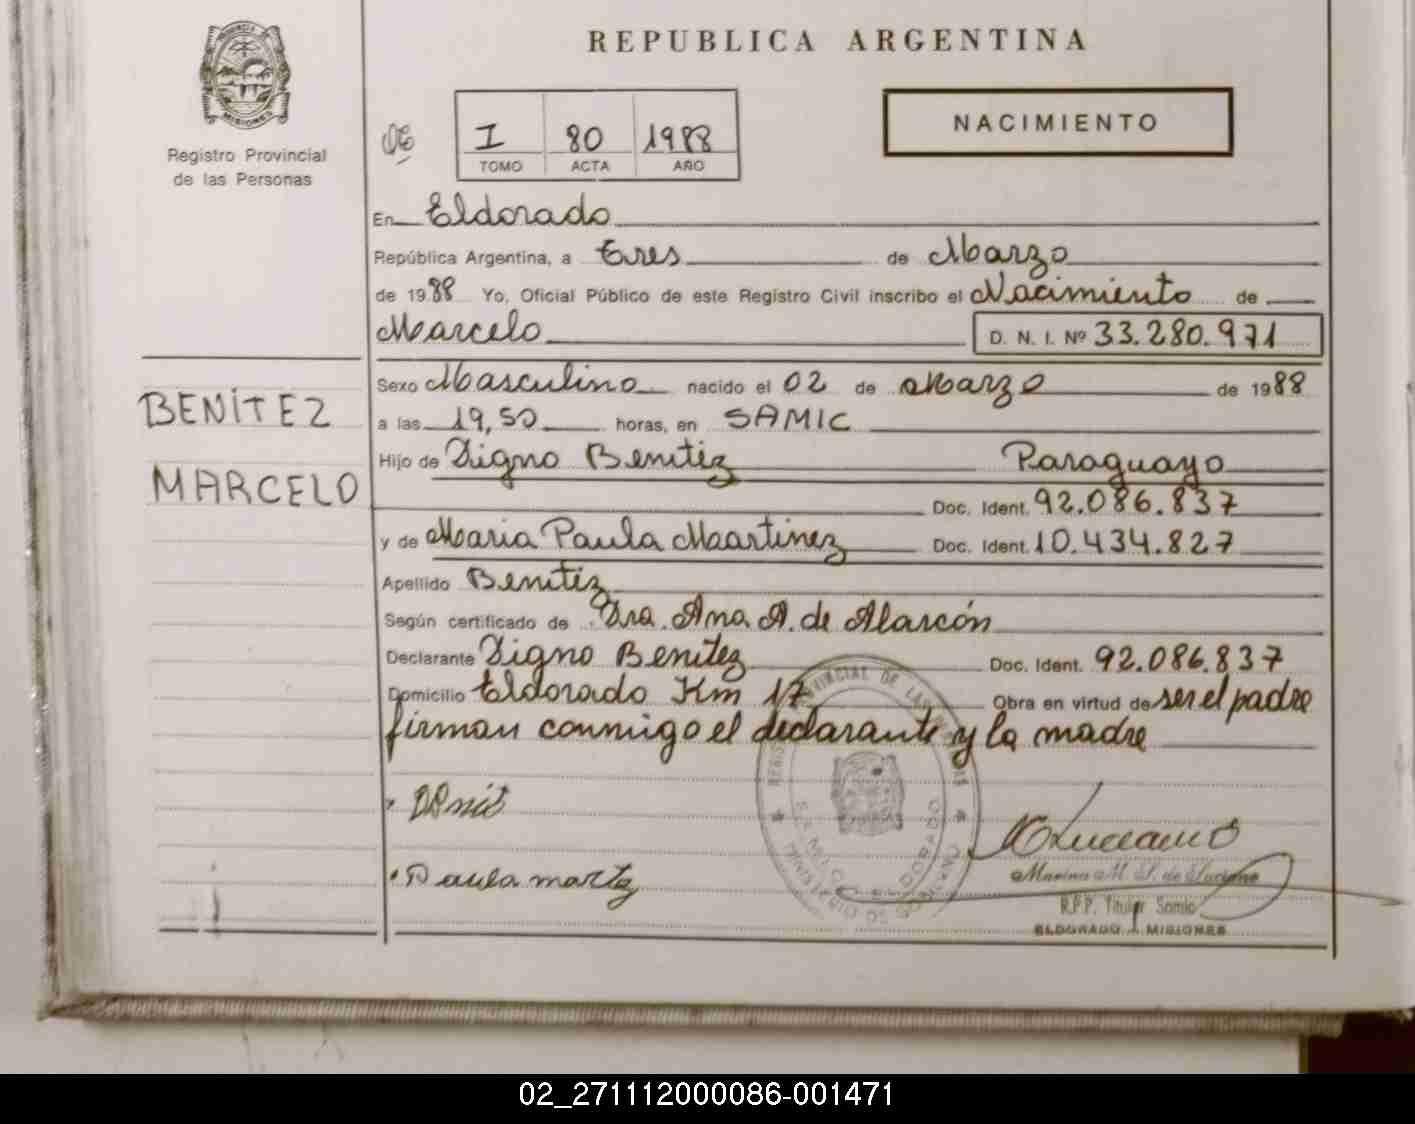 REPUBLICA ARGENTINA
PROVINCIA DE MISIONES
Registro Provincial
de las Personas
I 80 1988
TOMO ACTA AÑO
NACIMIENTO
En Eldorado
República Argentina, a Tres de Marzo
de 1988 Yo, Oficial Público de este Registro Civil inscribo el Nacimiento de
Marcelo D. N. I. Nº 33.280.971
Sexo Masculino nacido el 02 de Marzo de 1988
BENITEZ
a las 19,50 horas, en SAMIC
Hijo de Digno Benitez Paraguayo
MARCELO
Doc. Ident. 92.086.837
y de Maria Paula Martinez Doc. Ident. 10.434.827
Apellido Benitez
Según certificado de Dra. Ana A. de Alarcón
Declarante Digno Benitez Doc. Ident. 92.086.837
Domicilio Eldorado Km 17 Obra en virtud de ser el padre
firman conmigo el declarante y la madre
Paula martz
Luciano
Marina M. S. de Luciano
R.P.P. Titular Samic
ELDORADO MISIONES
02_271112000086-001471